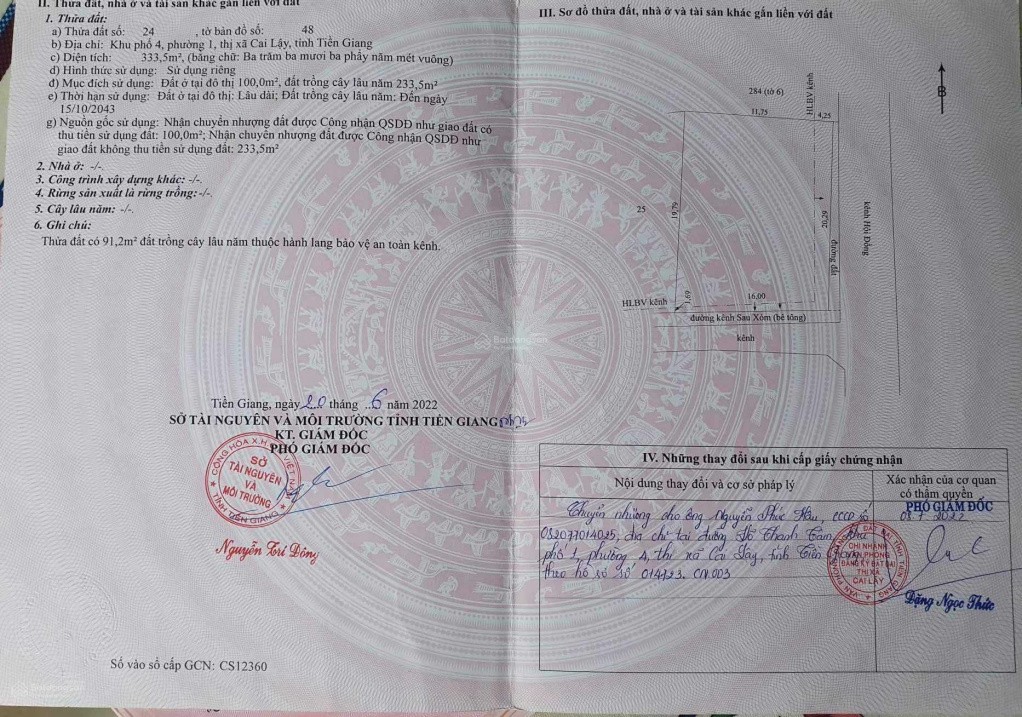 II. Thửa đất, nhà ở và tài sản khác gắn liền với đất
1. Thửa đất:
a) Thửa đất số: 24 , tờ bản đồ số: 48
b) Địa chỉ: Khu phố 4, phường 1, thị xã Cai Lậy, tỉnh Tiền Giang
c) Diện tích: 333,5m², (bằng chữ: Ba trăm ba mươi ba phẩy năm mét vuông)
d) Hình thức sử dụng: Sử dụng riêng
đ) Mục đích sử dụng: Đất ở tại đô thị 100,0m², đất trồng cây lâu năm 233,5m²
e) Thời hạn sử dụng: Đất ở tại đô thị: Lâu dài; Đất trồng cây lâu năm: Đến ngày
15/10/2043
g) Nguồn gốc sử dụng: Nhận chuyển nhượng đất được Công nhận QSDĐ như giao đất có
thu tiền sử dụng đất: 100,0m²; Nhận chuyển nhượng đất được Công nhận QSDĐ như
giao đất không thu tiền sử dụng đất: 233,5m²
2. Nhà ở: -/-.
3. Công trình xây dựng khác: -/-.
4. Rừng sản xuất là rừng trồng:-/-.
5. Cây lâu năm: -/-.
6. Ghi chú:
Thửa đất có 91,2m² đất trồng cây lâu năm thuộc hành lang bảo vệ an toàn kênh.
Tiền Giang, ngày 20 tháng 6 năm 2022
SỞ TÀI NGUYÊN VÀ MÔI TRƯỜNG TỈNH TIỀN GIANG
KT. GIÁM ĐỐC
PHÓ GIÁM ĐỐC
CỘNG HÒA X.H.C.N VIỆT NAM
SỞ
TÀI NGUYÊN
VÀ
MÔI TRƯỜNG
TỈNH TIỀN GIANG
Nguyễn Trí Dông
Số vào sổ cấp GCN: CS12360
III. Sơ đồ thửa đất, nhà ở và tài sản khác gắn liền với đất
B
284 (tờ 6)
HLBV kênh
11,75
4,25
25
19,79
20,29
kênh Hội Đồng
đường đất
1,69
16,00
HLBV kênh
đường kênh Sau Xóm (bê tông)
kênh
Batdongsan
IV. Những thay đổi sau khi cấp giấy chứng nhận
Nội dung thay đổi và cơ sở pháp lý
Xác nhận của cơ quan
có thẩm quyền
PHÓ GIÁM ĐỐC
Chuyển nhượng cho ông Nguyễn Phúc Hậu, CCCD số
082077014025, địa chỉ tại đường Võ Thanh Tâm, khu
phố 1, phường 4, thị xã Cai Lậy, tỉnh Tiền
theo hồ sơ số 014723.CN.003
CHI NHÁNH
VĂN PHÒNG
ĐĂNG KÝ ĐẤT ĐAI
THỊ XÃ
CAI LẬY
Đặng Ngọc Thức